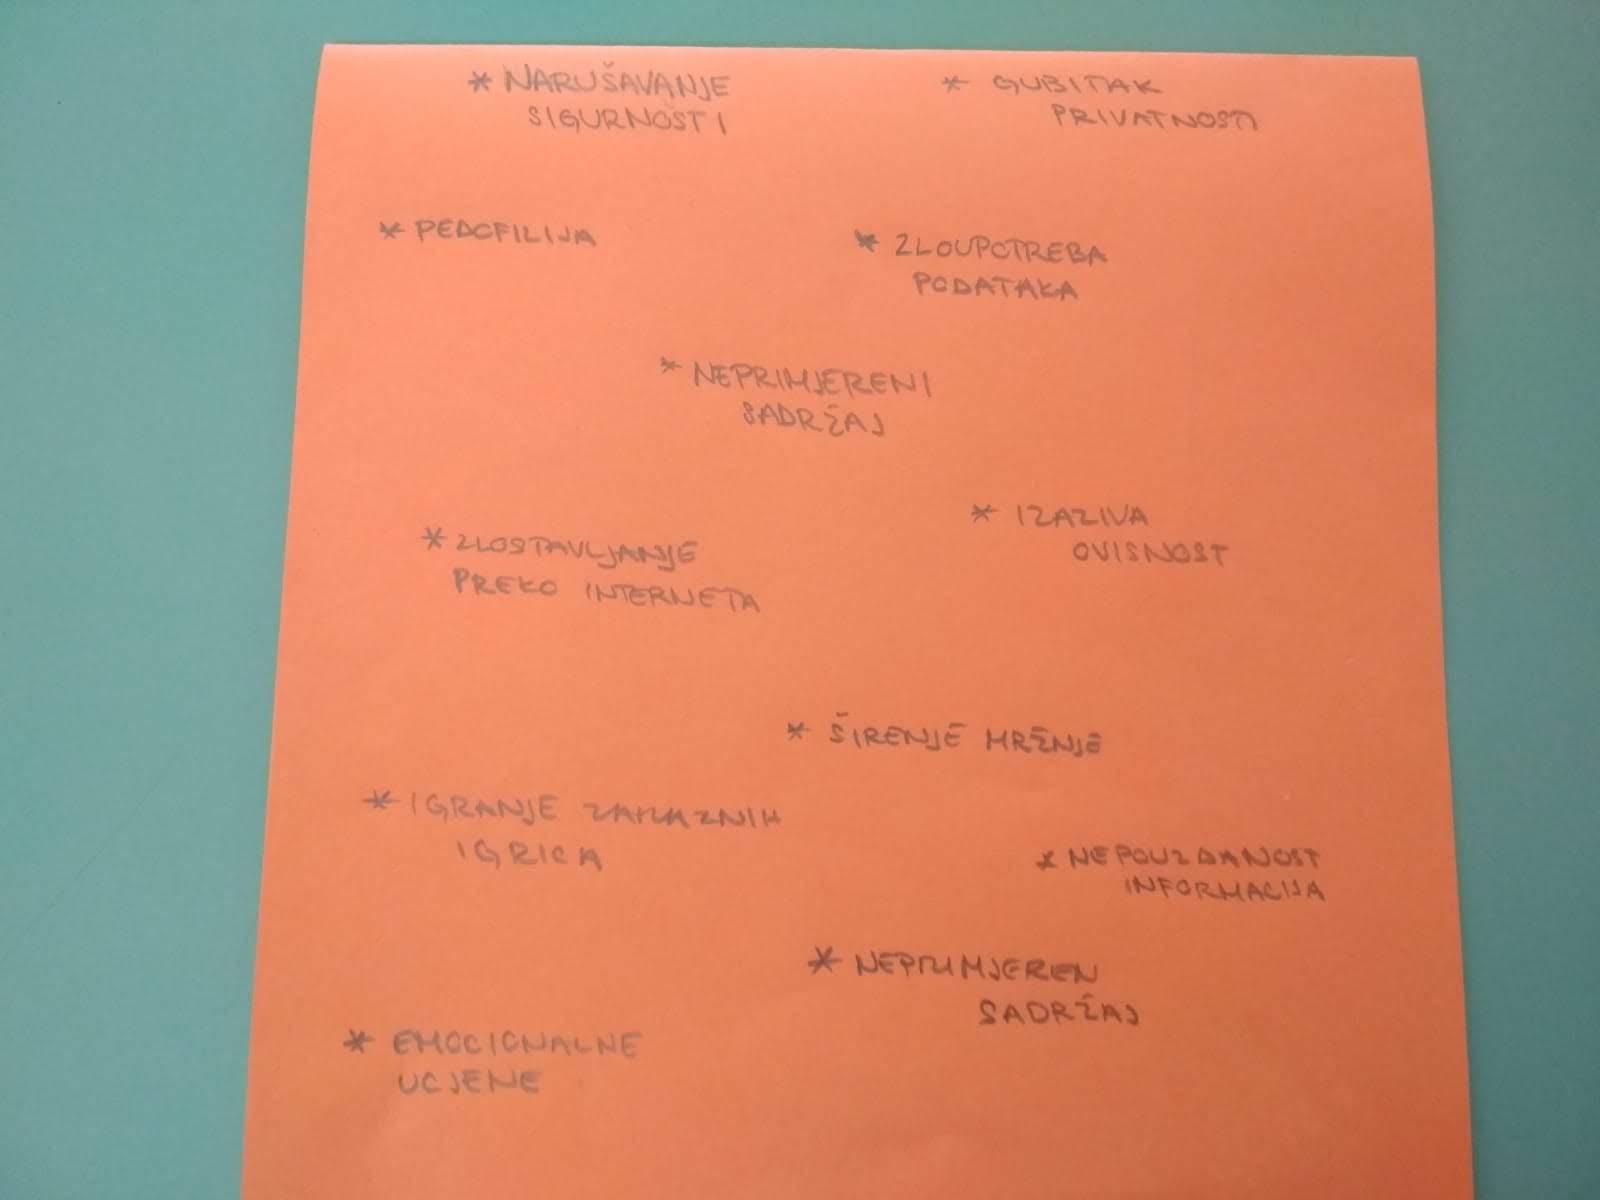 * NARUŠAVANJE
SIGURNOSTI
* GUBITAK
PRIVATNOSTI
* PEDOFILIJA
* ZLOUPOTREBA
PODATAKA
* NEPRIMJERENI
SADRŽAJ
* IZAZIVA
OVISNOST
* ZLOSTAVLJANJE
PREKO INTERNETA
* ŠIRENJE MRŽNJE
* IGRANJE ZAKAZNIH
IGRICA
* NEPOUZDANOST
INFORMACIJA
* NEPRIMJEREN
SADRŽAJ
* EMOCIONALNE
UCJENE